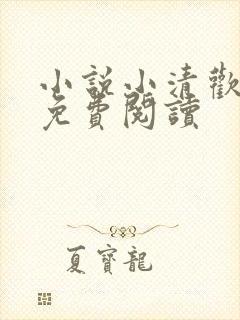 小說小清歡
免費閱讀
夏寶龍